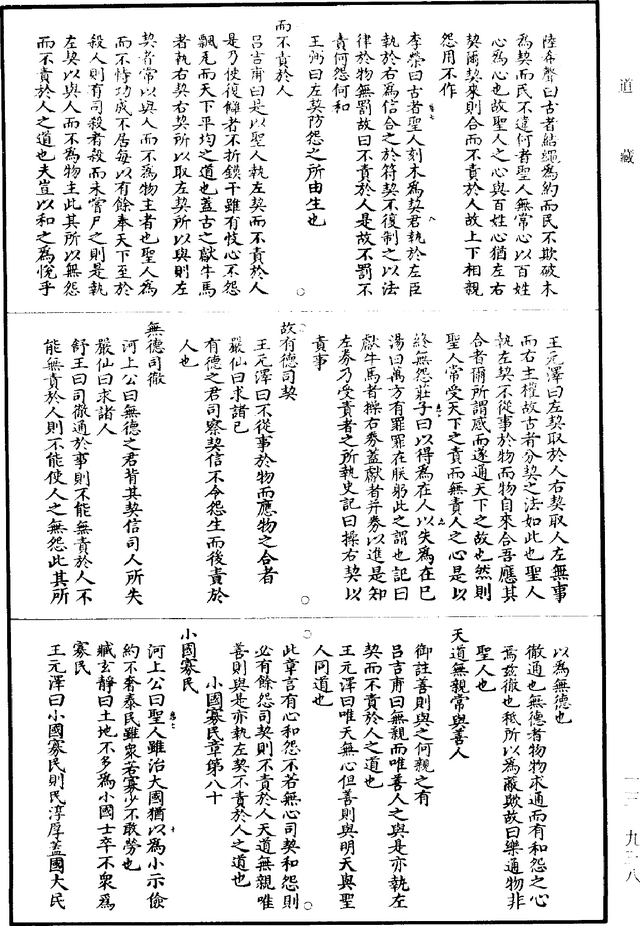 道藏
陸希聲曰古者結繩為約而民不欺破木
為契而民不違何者聖人無常心以百姓
心為心也故聖人之心與百姓心猶左右
契爾契來則合而不責於人故上下相親
怨用不作
李榮曰古者聖人刻木為契君執於左臣
執於右為信合之於符契不復制之以法
律於物無罰故曰不責於人是故不罰不
責何怨何和
王弼曰左契防怨之所由生也
而不責於人
呂吉甫曰是以聖人執左契而不責於人
是乃使復讎者不折鏌干雖有忮心不怨
飄瓦而天下平均之道也蓋古之獻牛馬
者執右契右契所以取左契所以與則左
契者常以與人而不為物主者也聖人為
而不恃功成不居每以有餘奉天下至於
殺人則有司殺者殺而未嘗尸之則是執
左契以與人而不為物主此其所以無怨
而不責於人之道也夫豈以和之為悅乎
王元澤曰左契取於人右契取人左無事
而右主權故古者分契之法如此也聖人
執左契不從事於物而物自來合吾應其
合者爾所謂感而遂通天下之故也然則
聖人常受天下之責而無責人之心是以
終無怨莊子曰以得為在人以失為在己
湯曰萬方有罪罪在朕躬此之謂也記曰
獻牛馬者操右券蓋獻者并券以進是知
左券乃受責者之所執史記曰操右契以
責事
故有德司契
王元澤曰不從事於物而應物之合者
嚴仙曰求諸己
有德之君司察契信不令怨生而後責於
人也
無德司徹
河上公曰無德之君背其契信司人所失
嚴仙曰求諸人
舒王曰司徹通於事則不能無責於人不
能無責於人則不能使人之無怨此其所
以為無德也
徹通也無德者物物求通而有和怨之心
焉茲徹也秪所以為蔽歟故曰樂通物非
聖人也
天道無親常與善人
御註善則與之何親之有
呂吉甫曰無親而唯善人之與是亦執左
契而不責於人之道也
王元澤曰唯天無心但善則與明天與聖
人同道也
此章言有心和怨不若無心司契和怨則
必有餘怨司契則不責於人天道無親唯
善則與是亦執左契不責於人之道也
小國寡民章第八十
小國寡民
河上公曰聖人雖治大國猶以為小示儉
約不奢泰民雖衆若寡少不敢勞也
臧玄靜曰土地不多為小國士卒不衆為
寡民
王元澤曰小國寡民則民淳厚蓋國大民
一三 九二八